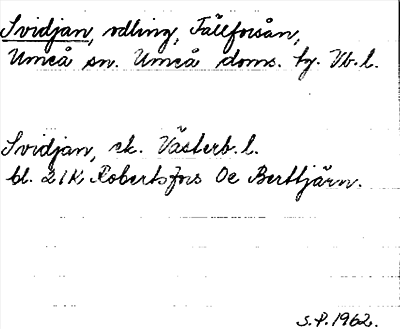 Svidjan, odling, Fällforsån,
Umeå sn. Umeå doms. hy. Vb. l.
Svidjan, ek. Västerb. l.
bl. 21K Robertsfors Oc Berttjärn.
S.P. 1962.